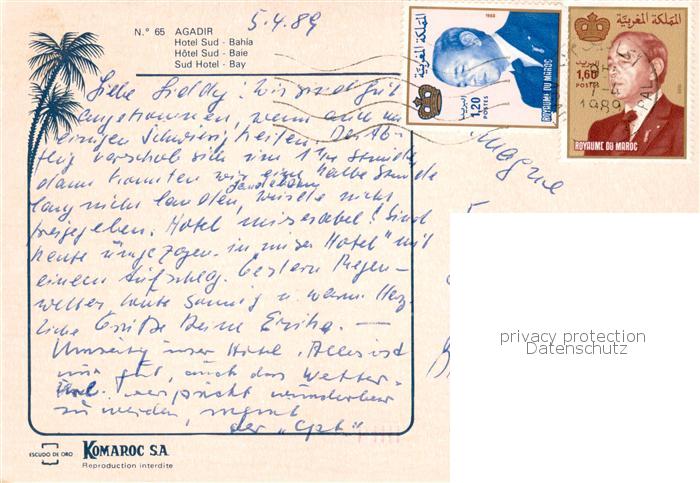 5.4.89
N.° 65 AGADIR
Hotel Sud - Bahía
Hôtel Sud - Baie
Sud Hotel - Bay
Liebe Wir sind gut
angekommen, wenn auch mit
einigen Schwierigkeiten. Der Ab-
flug verschob sich um 1 1/2 Stunden,
dann konnten wir eine halbe Stunde
lang nicht landen, Landebahn nicht
freigegeben. Hotel miserabel! Sind
heute umgezogen in unser Hotel mit
einem Aufschlag. Gestern Regen-
wetter heute sonnig u. warm. Herz-
liche Grüße Deine Erika. —
Umseitig unser Hotel. Alles ist
nun gut, auch das Wetter
verspricht wunderbar
zu werden, meint
der "Cpt"
المملكة المغربية
1988
1,20
POSTES
ROYAUME DU MAROC
المملكة المغربية
1,60
POSTES
1989
ROYAUME DU MAROC
privacy protection
Datenschutz
ESCUDO DE ORO
KOMAROC S.A.
Reproduction interdite